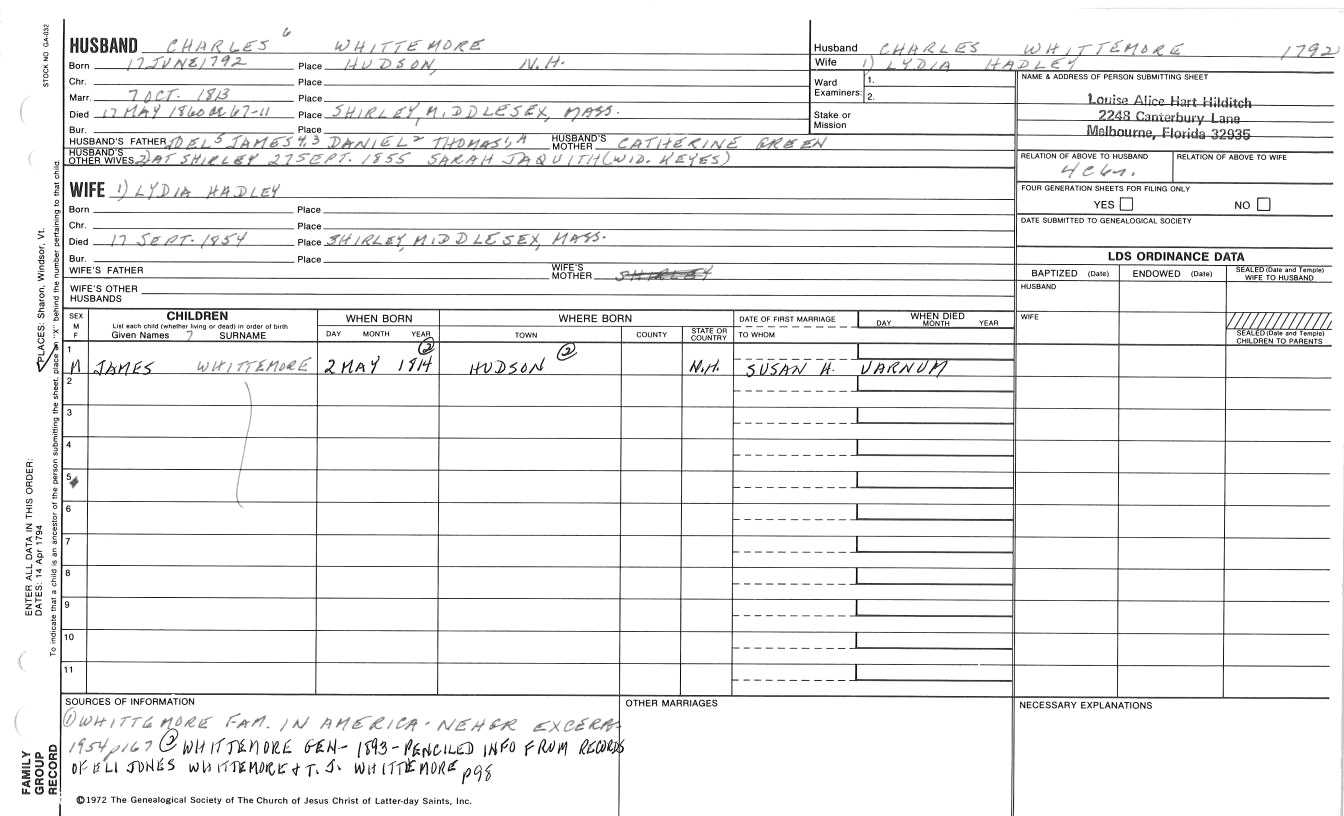 STOCK NO GA-032
HUSBAND CHARLES 6 WHITTEMORE
Born 17 JUNE 1792 Place HUDSON, N.H.
Chr. Place
Marr. 7 OCT. 1813 Place
Died 17 MAY 1860 67-11 Place SHIRLEY, MIDDLESEX, MASS.
Bur. Place
HUSBAND'S FATHER JOEL 5 JAMES 4,3 DANIEL 2 THOMAS 1,A HUSBAND'S MOTHER CATHERINE GREEN
HUSBAND'S OTHER WIVES 2) AT SHIRLEY 27 SEPT. 1855 SARAH JAQUITH (WID. KEYES)
Husband CHARLES WHITTEMORE 1792
Wife 1) LYDIA HADLEY
Ward Examiners: 1.
2.
Stake or Mission
NAME & ADDRESS OF PERSON SUBMITTING SHEET
Louise Alice Hart Hilditch
2248 Canterbury Lane
Melbourne, Florida 32935
RELATION OF ABOVE TO HUSBAND RELATION OF ABOVE TO WIFE
FOUR GENERATION SHEETS FOR FILING ONLY
YES NO
DATE SUBMITTED TO GENEALOGICAL SOCIETY
WIFE 1) LYDIA HADLEY
Born Place
Chr. Place
Died 17 SEPT. 1854 Place SHIRLEY, MIDDLESEX, MASS.
Bur. Place
WIFE'S FATHER WIFE'S MOTHER SHIRLEY
WIFE'S OTHER HUSBANDS
LDS ORDINANCE DATA
BAPTIZED (Date) ENDOWED (Date) SEALED (Date and Temple) WIFE TO HUSBAND
HUSBAND
WIFE
SEALED (Date and Temple) CHILDREN TO PARENTS
SEX M F
CHILDREN
List each child (whether living or dead) in order of birth
Given Names 7 SURNAME
WHEN BORN
DAY MONTH YEAR
WHERE BORN
TOWN COUNTY STATE OR COUNTRY
DATE OF FIRST MARRIAGE
TO WHOM
WHEN DIED
DAY MONTH YEAR
1 M JAMES WHITTEMORE 2 MAY 1814 2 HUDSON 2 N.H. SUSAN H. VARNUM
2
3
4
5
6
7
8
9
10
11
SOURCES OF INFORMATION
1 WHITTEMORE FAM. IN AMERICA - NEHGR EXCERP
1954 p167 2 WHITTEMORE GEN - 1893 - PENCILED INFO FROM RECORDS
OF ELI JONES WHITTEMORE & T. J. WHITTEMORE p98
OTHER MARRIAGES
NECESSARY EXPLANATIONS
©1972 The Genealogical Society of The Church of Jesus Christ of Latter-day Saints, Inc.
FAMILY GROUP RECORD
ENTER ALL DATA IN THIS ORDER:
DATES: 14 Apr 1794
PLACES: Sharon, Windsor, Vt.
To indicate that a child is an ancestor of the person submitting the sheet, place an "X" behind the number pertaining to that child.